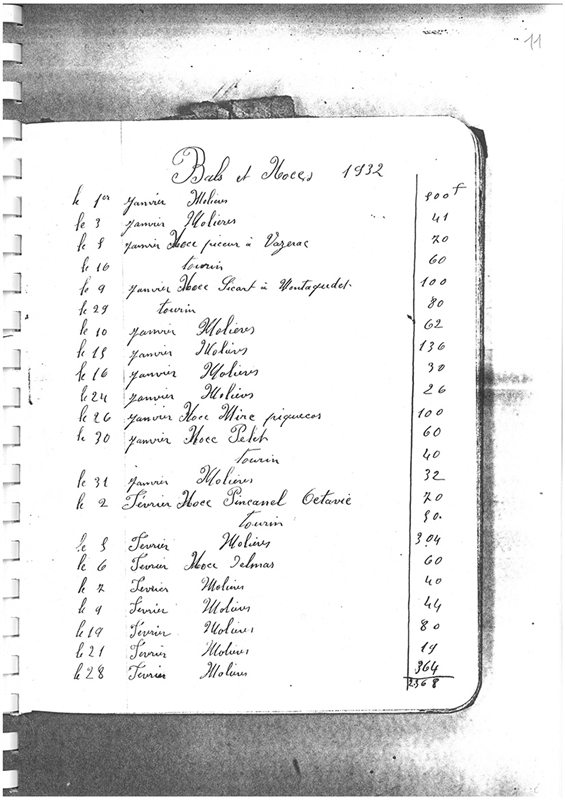 11
Bals et Noces 1932
le 1er janvier Molières 500 f
le 3 janvier Molières 41
le 5 janvier Noce à Vazerac 70
le 16 tourin 60
le 9 janvier Noce Sicart à Montagudet 100
le 29 tourin 80
le 10 janvier Molières 62
le 15 janvier Molières 136
le 16 janvier Molières 30
le 24 janvier Molières 26
le 26 janvier Noce piquecos 100
le 30 janvier Noce Petit 60
tourin 40
le 31 janvier Molières 32
le 2 Février Noce Octavie 70
tourin 50
le 5 Fevrier Molières 304
le 6 Fevrier Noce Delmas 60
le 7 Fevrier Molières 40
le 9 Fevrier Molières 44
le 19 Fevrier Molières 80
le 21 Fevrier Molières 19
le 28 Fevrier Molières 364
2368